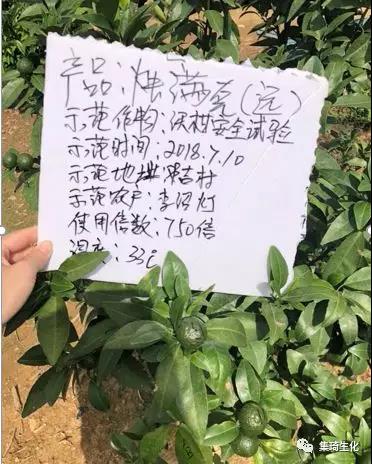 产品:满(克)
示范作物:沃柑安全试验
示范时间:2018.7.10
示范地址:吉村
示范农户:李灯
使用倍数:750倍
温度:33℃
集琦生化